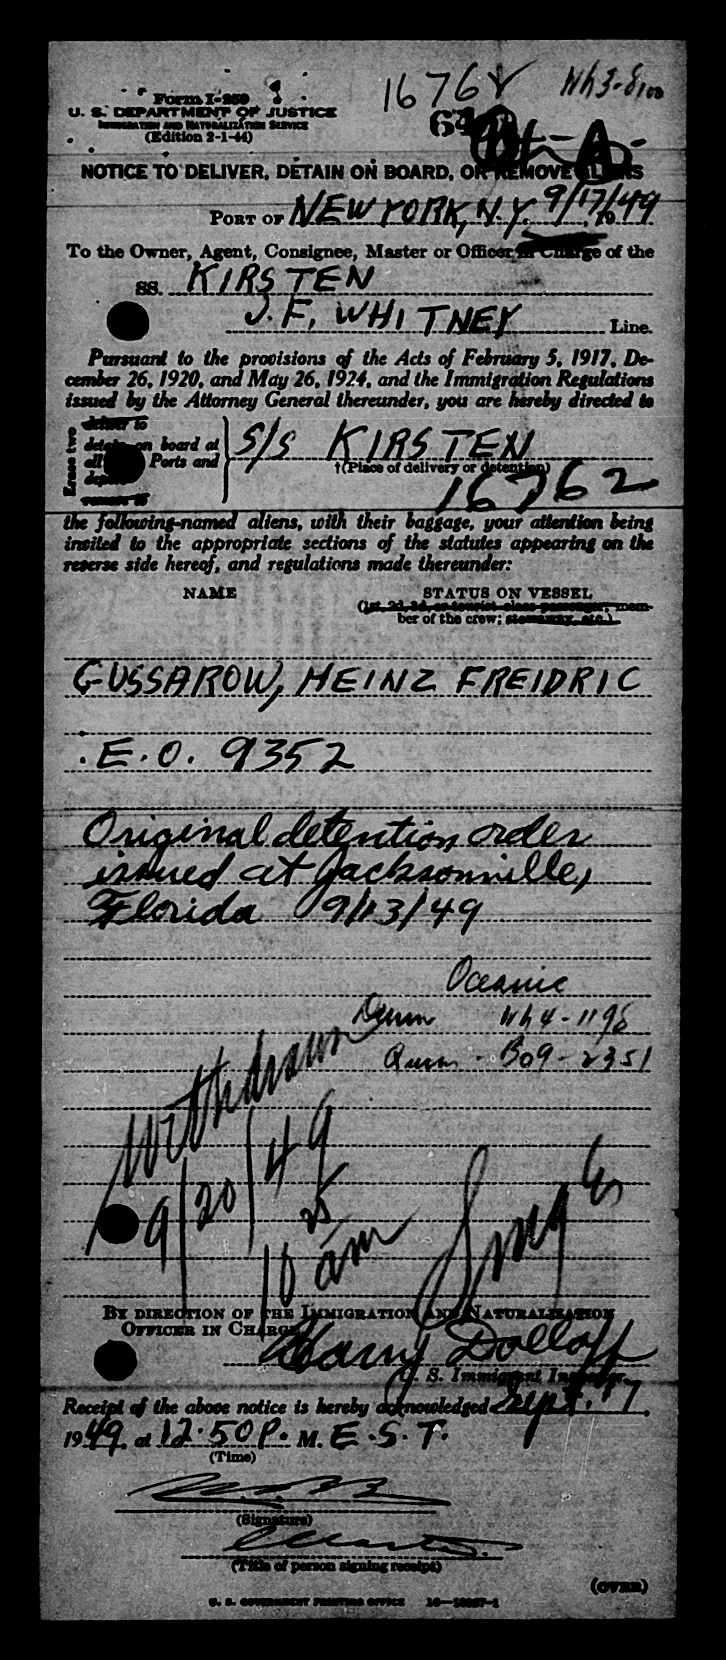 16762 Wh 3-8100
Form I-259
U. S. DEPARTMENT OF JUSTICE
IMMIGRATION AND NATURALIZATION SERVICE
(Edition 2-1-44)
64
NOTICE TO DELIVER, DETAIN ON BOARD, OR REMOVE ALIENS
PORT OF NEW YORK, N.Y. 9/17/49
To the Owner, Agent, Consignee, Master or Officer in Charge of the
SS. KIRSTEN
J. F. WHITNEY Line.
Pursuant to the provisions of the Acts of February 5, 1917, De-
cember 26, 1920, and May 26, 1924, and the Immigration Regulations
issued by the Attorney General thereunder, you are hereby directed to
Erase two
deliver to
detain on board at
all Ports and
remove to
S/S KIRSTEN
†(Place of delivery or detention)
16762
the following-named aliens, with their baggage, your attention being
invited to the appropriate sections of the statutes appearing on the
reverse side hereof, and regulations made thereunder:
NAME STATUS ON VESSEL
(1st, 2d, 3d, or tourist class passenger; mem-
ber of the crew; stowaway, etc.)
GUSSAROW, HEINZ FREIDRIC
E.O. 9352
Original detention order
issued at Jacksonville,
Florida 9/13/49
Oceanic
Dunn Wh 4-1198
Quinn - Bo9-2351
Withdrawn
9/20/49
10 25 am
BY DIRECTION OF THE IMMIGRATION AND NATURALIZATION
OFFICER IN CHARGE
Harry Dolloff
U. S. Immigrant Inspector.
Receipt of the above notice is hereby acknowledged Sept. 17,
1949, at 12.50 P. M. E.S.T.
(Time)
(Signature)
(Title of person signing receipt)
(OVER)
U. S. GOVERNMENT PRINTING OFFICE